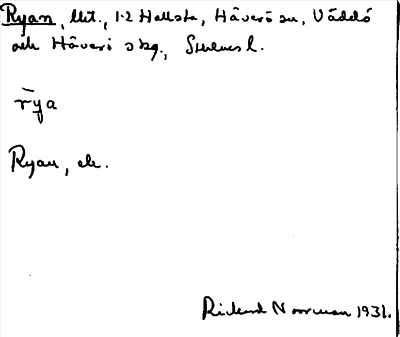 Ryan, lht., 1-2 Hallsta, Häverö sn, Väddö
och Häverö skg., Sthlms l.
rya
Ryan, ek.
Rickard Noorman 1931.